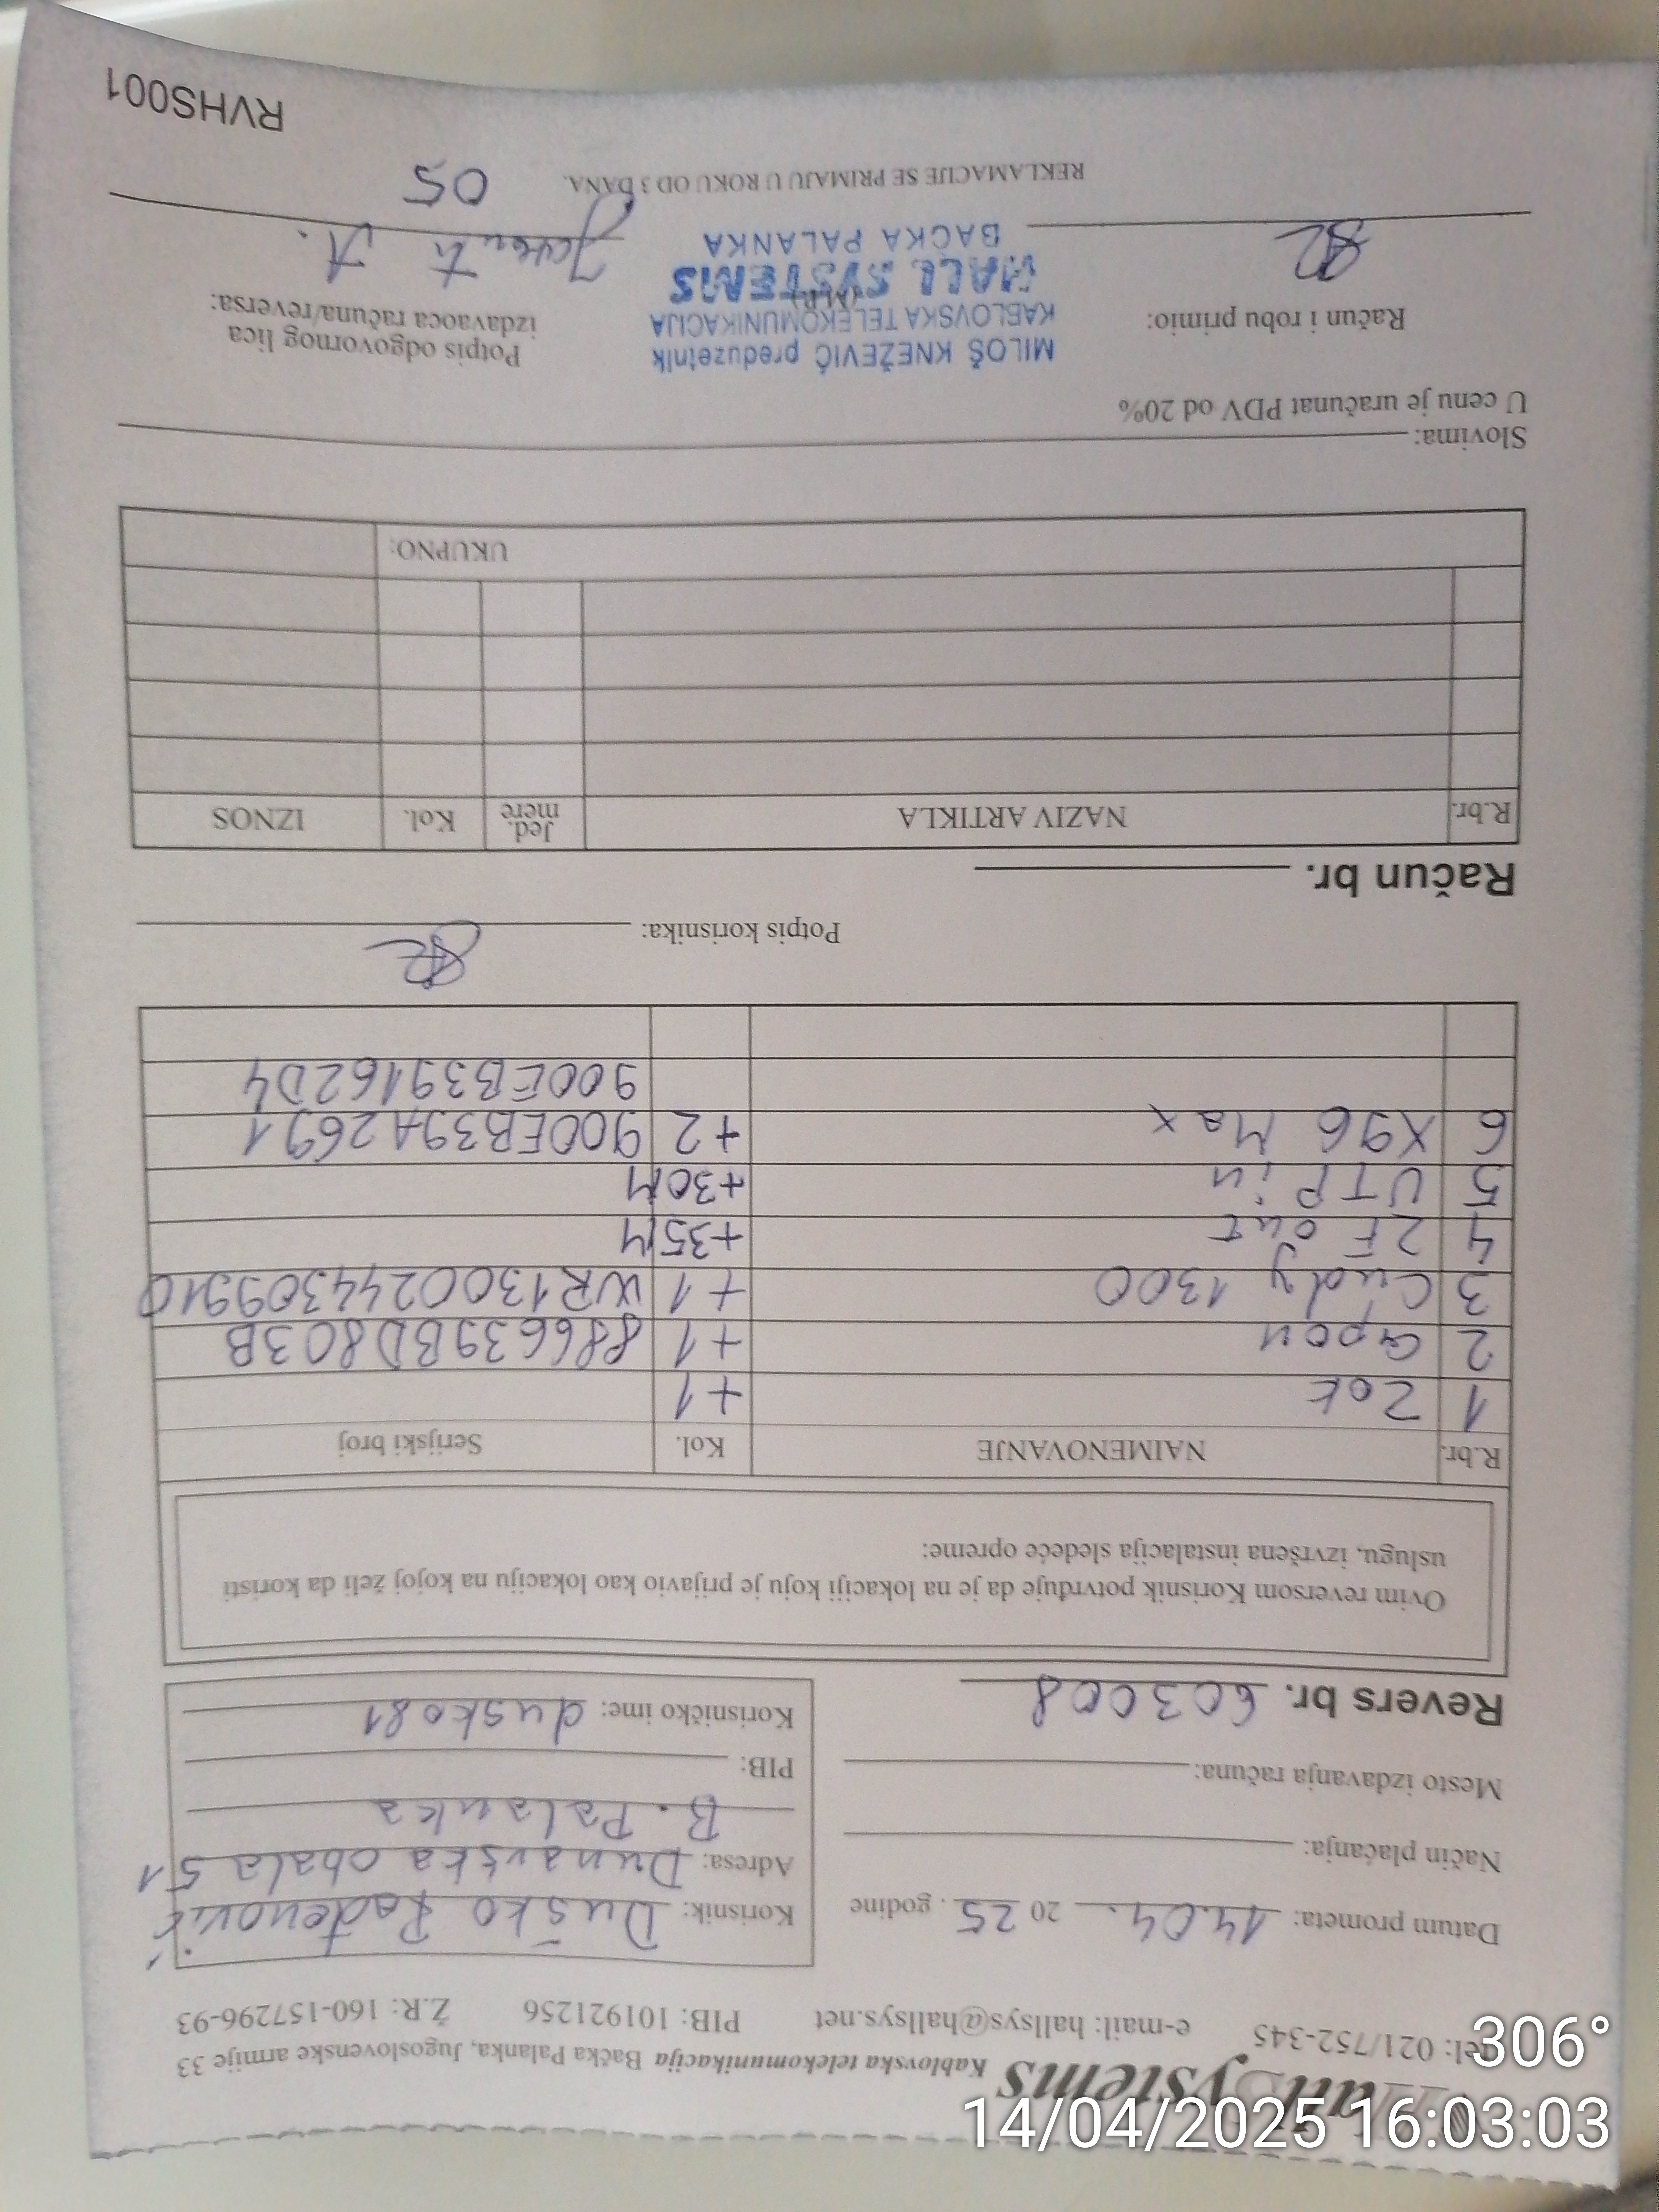 Hall Systems Kablovska telekomunikacija Bačka Palanka, Jugoslovenske armije 33
tel: 021/752-345 e-mail: hallsys@hallsys.net PIB: 101921256 Ž.R: 160-157296-93
Datum prometa: 14.04. 20 25. godine
Način plaćanja:
Mesto izdavanja računa:
Revers br. 603008
Korisnik: Duško Radenović
Adresa: Dunavska obala 51
B. Palanka
PIB:
Korisničko ime: dusko81
Ovim reversom Korisnik potvrđuje da je na lokaciji koju je prijavio kao lokaciju na kojoj želi da koristi
uslugu, izvršena instalacija sledeće opreme:
R.br. NAIMENOVANJE Kol. Serijski broj
1 ZOK +1
2 Gpon +1 886639BD803B
3 Cudy 1300 +1 WR1300244309910
4 2F out +35M
5 UTP in +30M
6 X96 Max +2 900EB39A2691
900EB39162D4
Potpis korisnika:
Račun br.
R.br. NAZIV ARTIKLA Jed. mere Kol. IZNOS
UKUPNO:
Slovima:
U cenu je uračunat PDV od 20%
Račun i robu primio:
MILOŠ KNEŽEVIĆ preduzetnik
KABLOVSKA TELEKOMUNIKACIJA
(M.P.)
HALL SYSTEMS
BAČKA PALANKA
Potpis odgovornog lica
izdavaoca računa/reversa:
05
REKLAMACIJE SE PRIMAJU U ROKU OD 3 DANA.
RVHS001
306°
14/04/2025 16:03:03